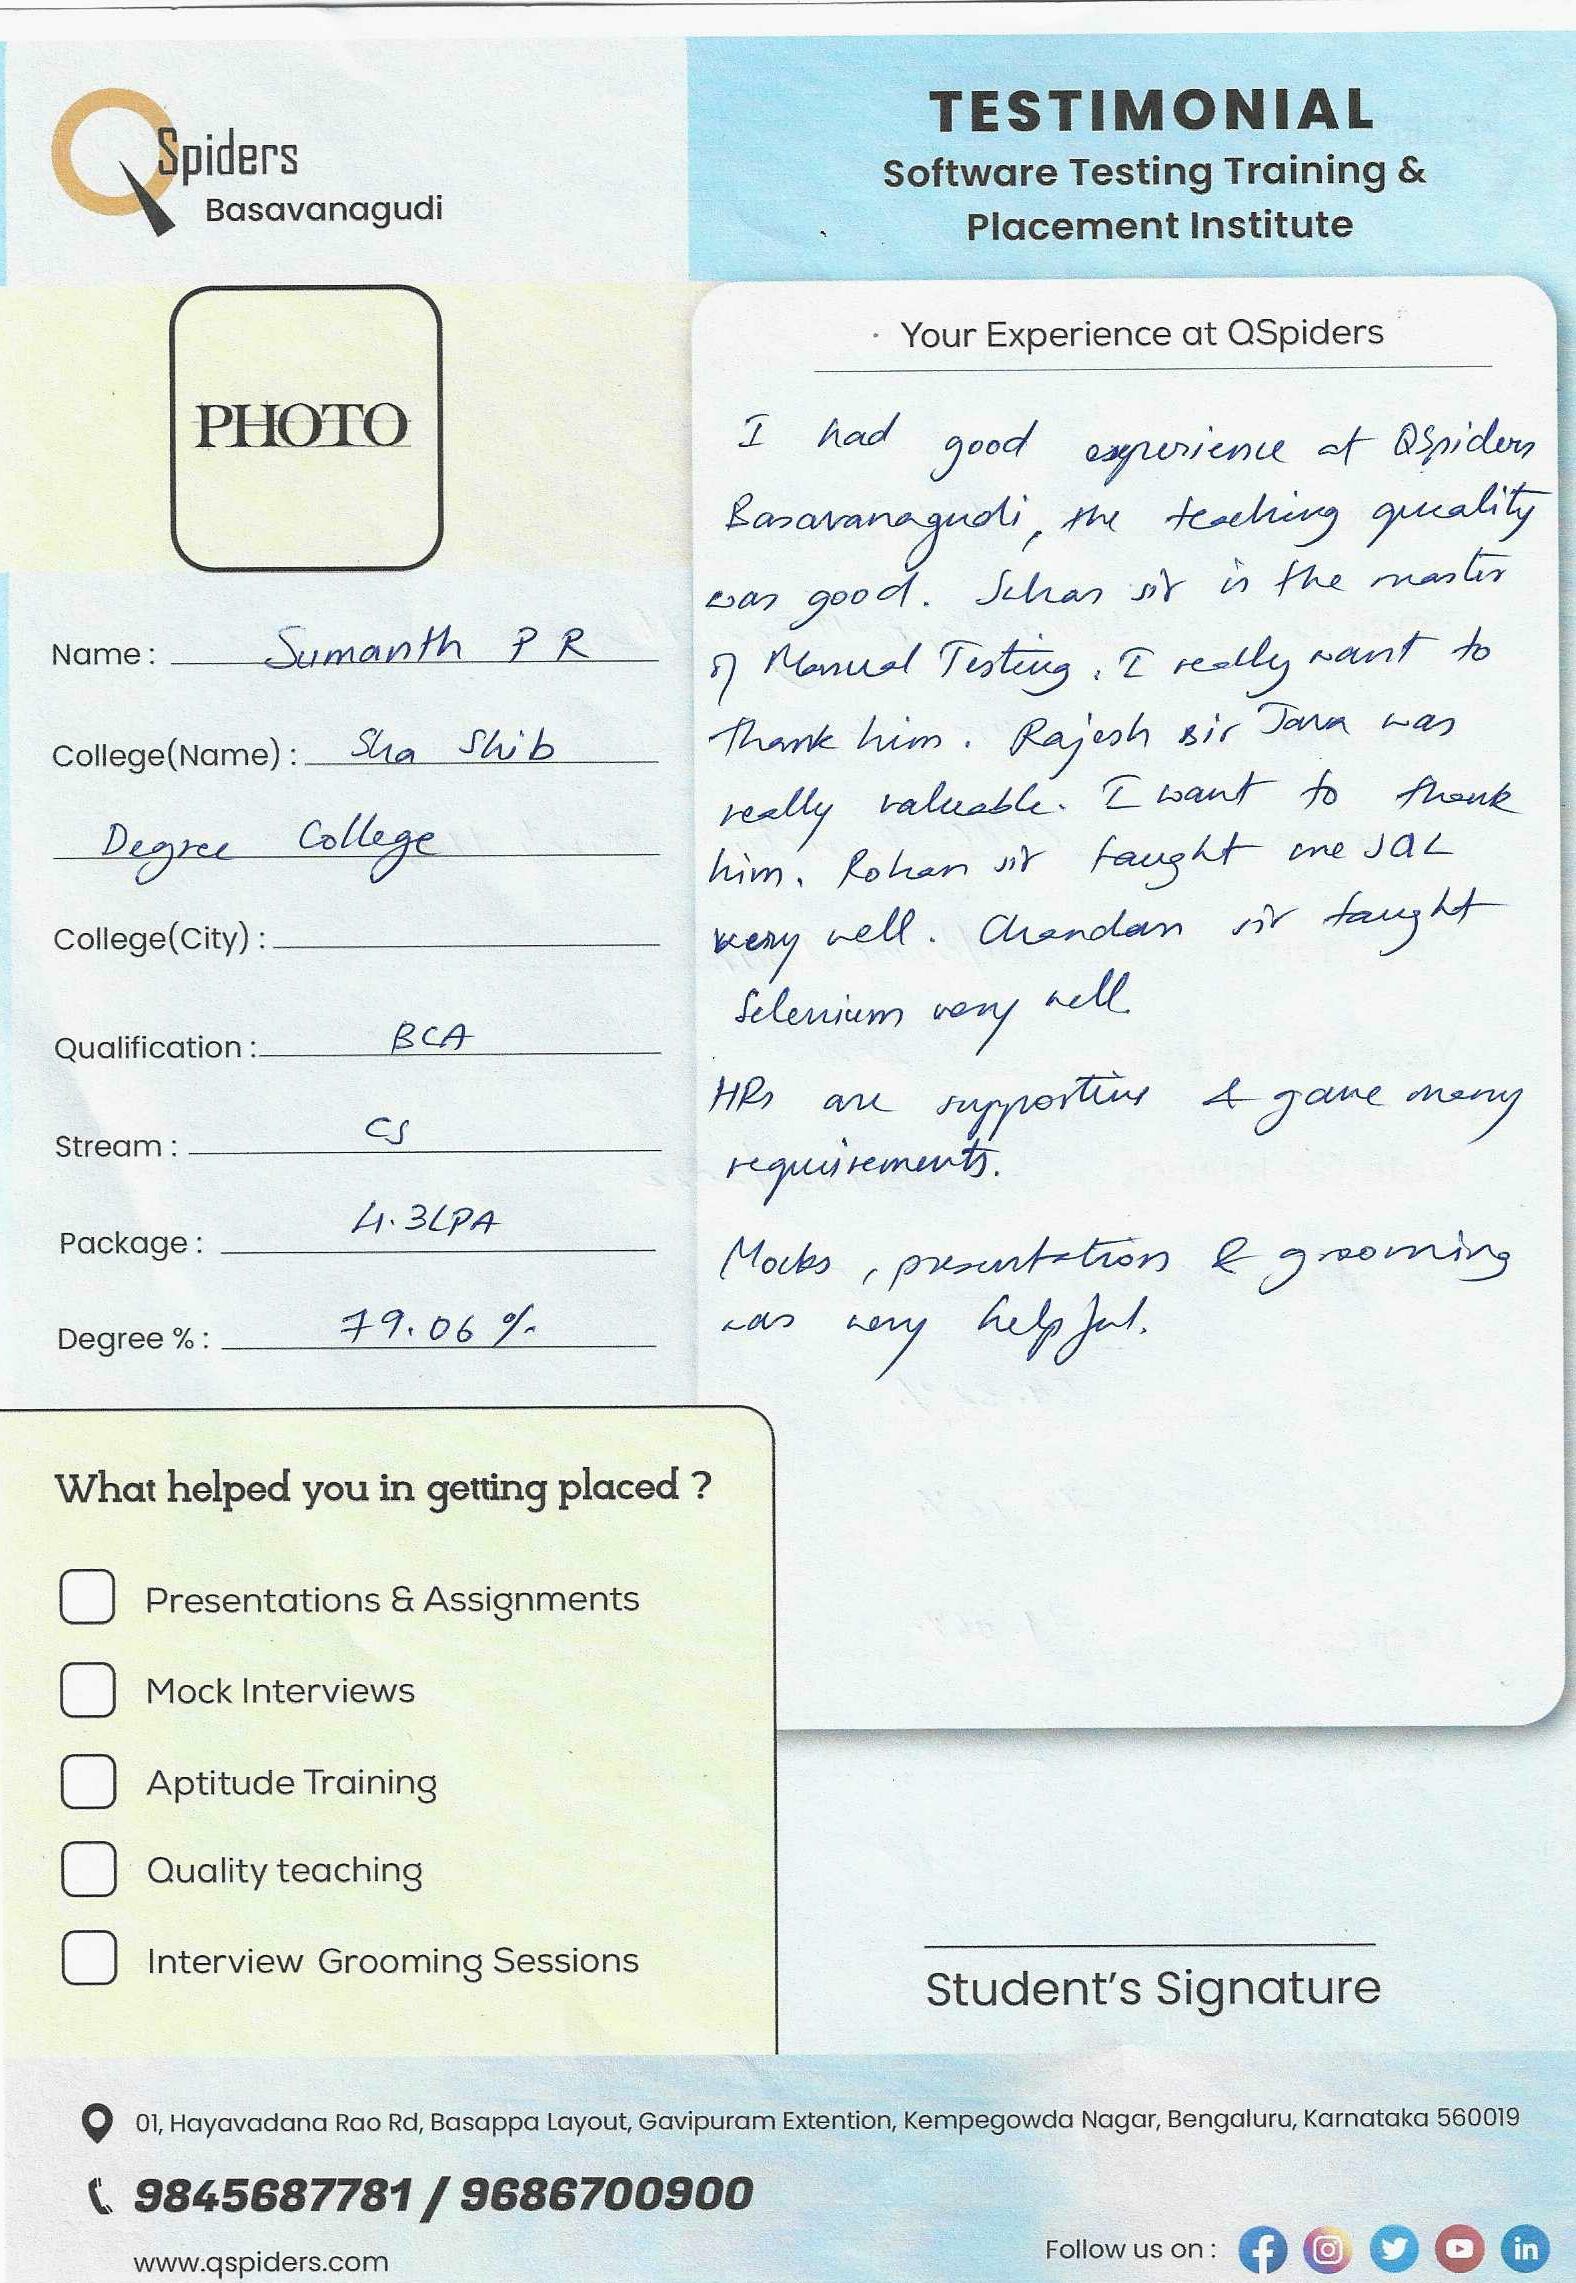 QSpiders
Basavanagudi
TESTIMONIAL
Software Testing Training &
Placement Institute
PHOTO
Name : Sumanth P R
College(Name) : Sha Shib
Degree College
College(City) :
Qualification : BCA
Stream : CS
Package : 4.3LPA
Degree % : 79.06 %
Your Experience at QSpiders
I had good experience at QSpiders
Basavanagudi, the teaching quality
was good. sir is the master
of Manual Testing. I really want to
thank him. Rajesh sir Java was
really valuable. I want to thank
him. Rohan sir taught me SQL
very well. Chandan sir taught
Selenium very well.
HRs are supportive & gave many
requirements.
Mocks, presentation & grooming
was very helpful.
What helped you in getting placed ?
Presentations & Assignments
Mock Interviews
Aptitude Training
Quality teaching
Interview Grooming Sessions
Student's Signature
01, Hayavadana Rao Rd, Basappa Layout, Gavipuram Extention, Kempegowda Nagar, Bengaluru, Karnataka 560019
9845687781 / 9686700900
www.qspiders.com
Follow us on :